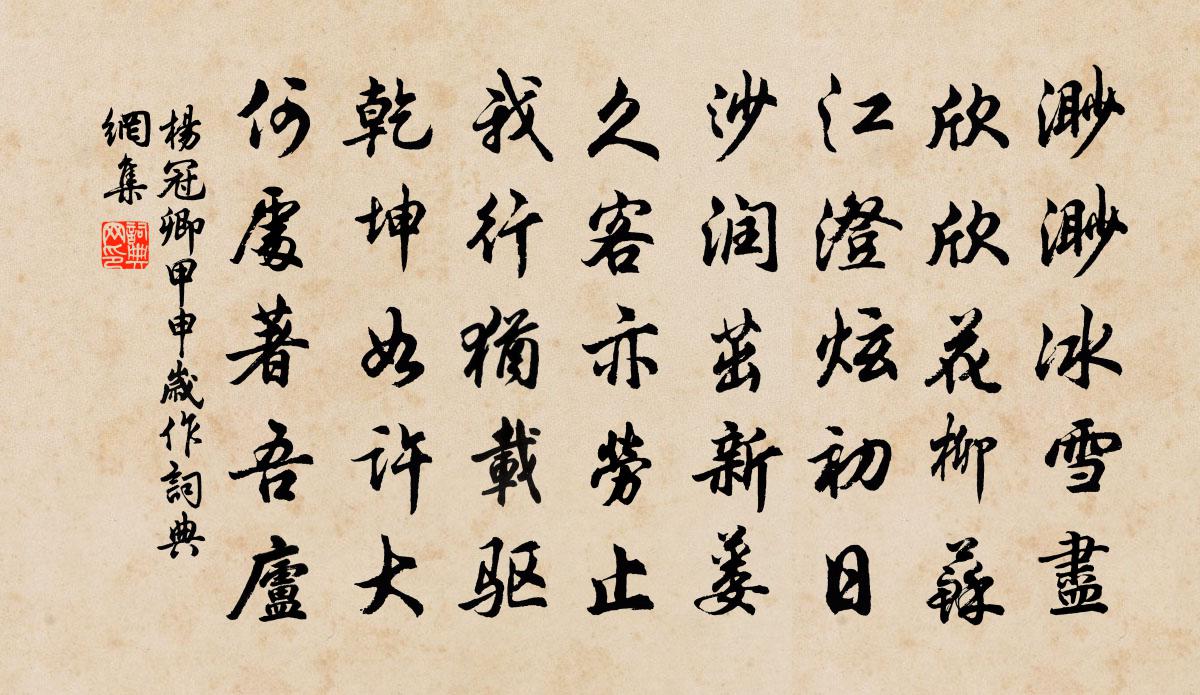 渺渺冰雪盡
欣欣花柳蘇
江澄炫初日
沙润茁新蒌
久客亦勞止
我行猶載驱
乾坤如許大
何處著吾廬
楊冠卿甲申歲作詞典
網集
詞典
网印